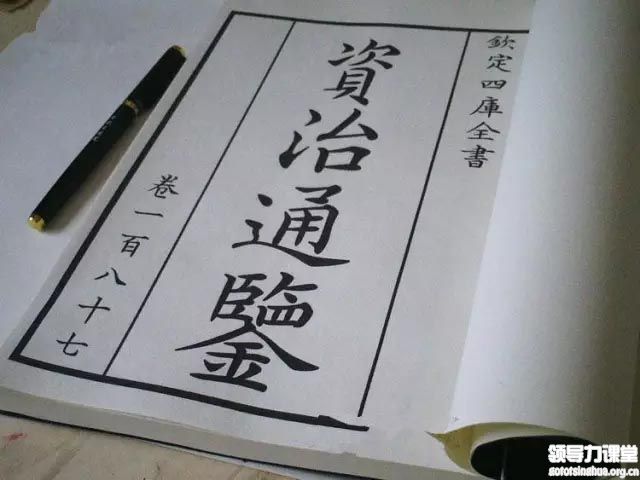 欽定四庫全書
資治通鑒
卷一百八十七
领导力课堂